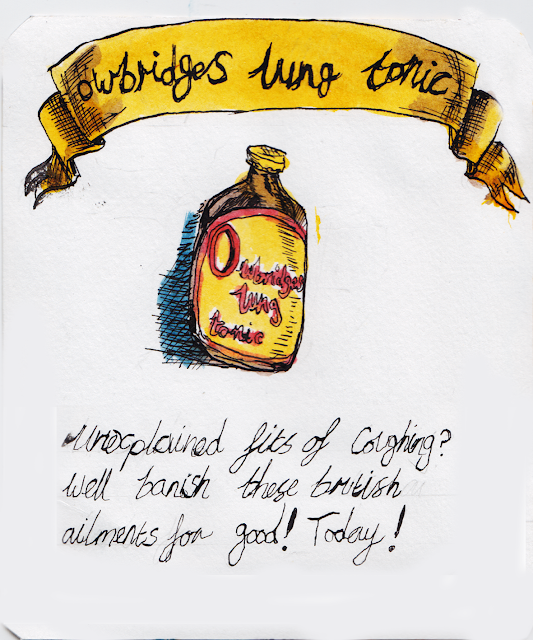 owbridges lung tonic
Owbridges
lung
tonic
Unexplained fits of Coughing?
Well banish these british
ailments for good! Today!